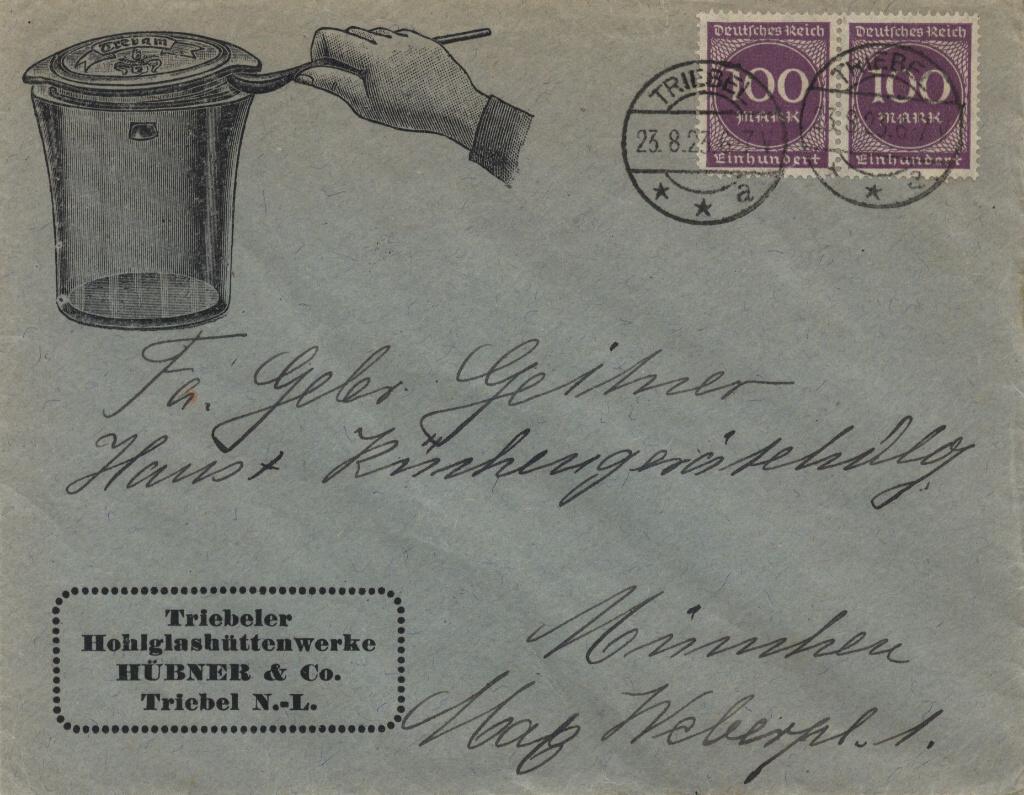 Trevam
Deutsches Reich Deutsches Reich
100 100
MARK MARK
Einhundert Einhundert
TRIEBEL TRIEBEL
23.8.23. 6-7 V
a a
Fa. Gebr. Geitner
Haus & Küchengerätehdlg
München
Max Weberpl. 1.
Triebeler
Hohlglashüttenwerke
HÜBNER & Co.
Triebel N.-L.